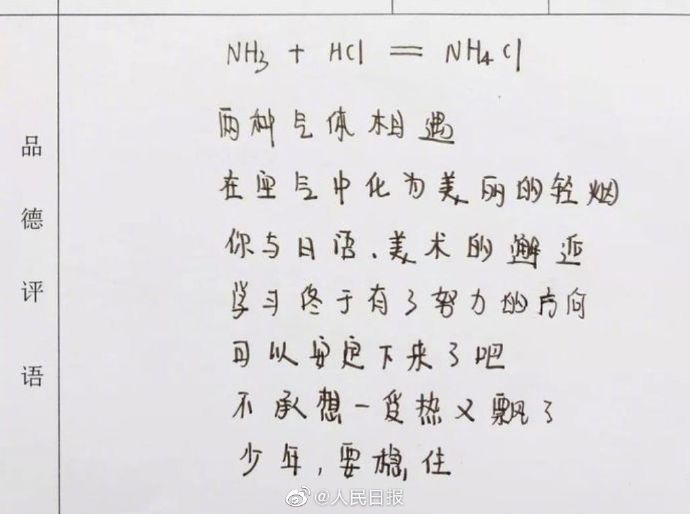 NH3 + HCl = NH4Cl
两种气体相遇
在空气中化为美丽的轻烟
你与日语、美术的邂逅
学习终于有了努力的方向
可以安定下来了吧
不承想一受热又飘了
少年,要稳住
品德评语
@人民日报